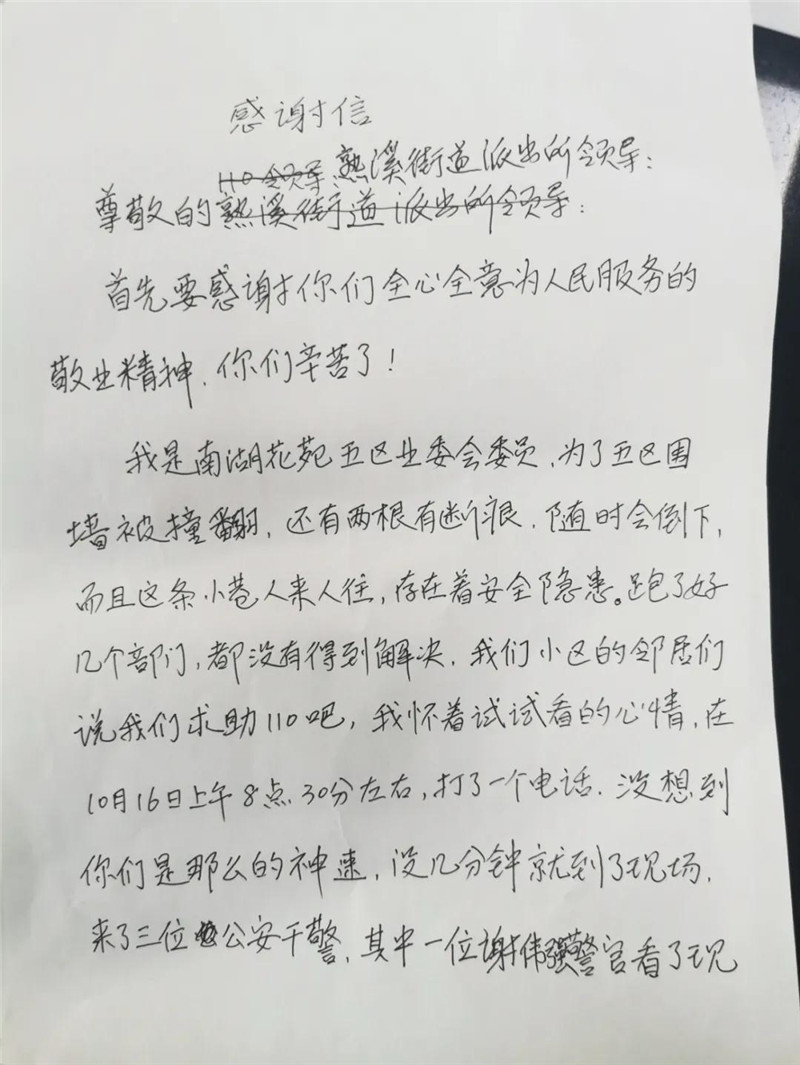 感谢信
110领导 熟溪街道派出所领导：
尊敬的熟溪街道派出所领导：
首先要感谢你们全心全意为人民服务的
敬业精神，你们辛苦了！
我是南湖花苑五区业委会委员，为了五区围
墙被撞翻，还有两根有断痕，随时会倒下，
而且这条小巷人来人往，存在着安全隐患。跑了好
几个部门，都没有得到解决，我们小区的邻居们
说我们求助110吧，我怀着试试看的心情，在
10月16日上午8点30分左右，打了一个电话．没想到
你们是那么的神速，没几分钟就到了现场，
来了三位公安干警，其中一位谢伟强警官看了现